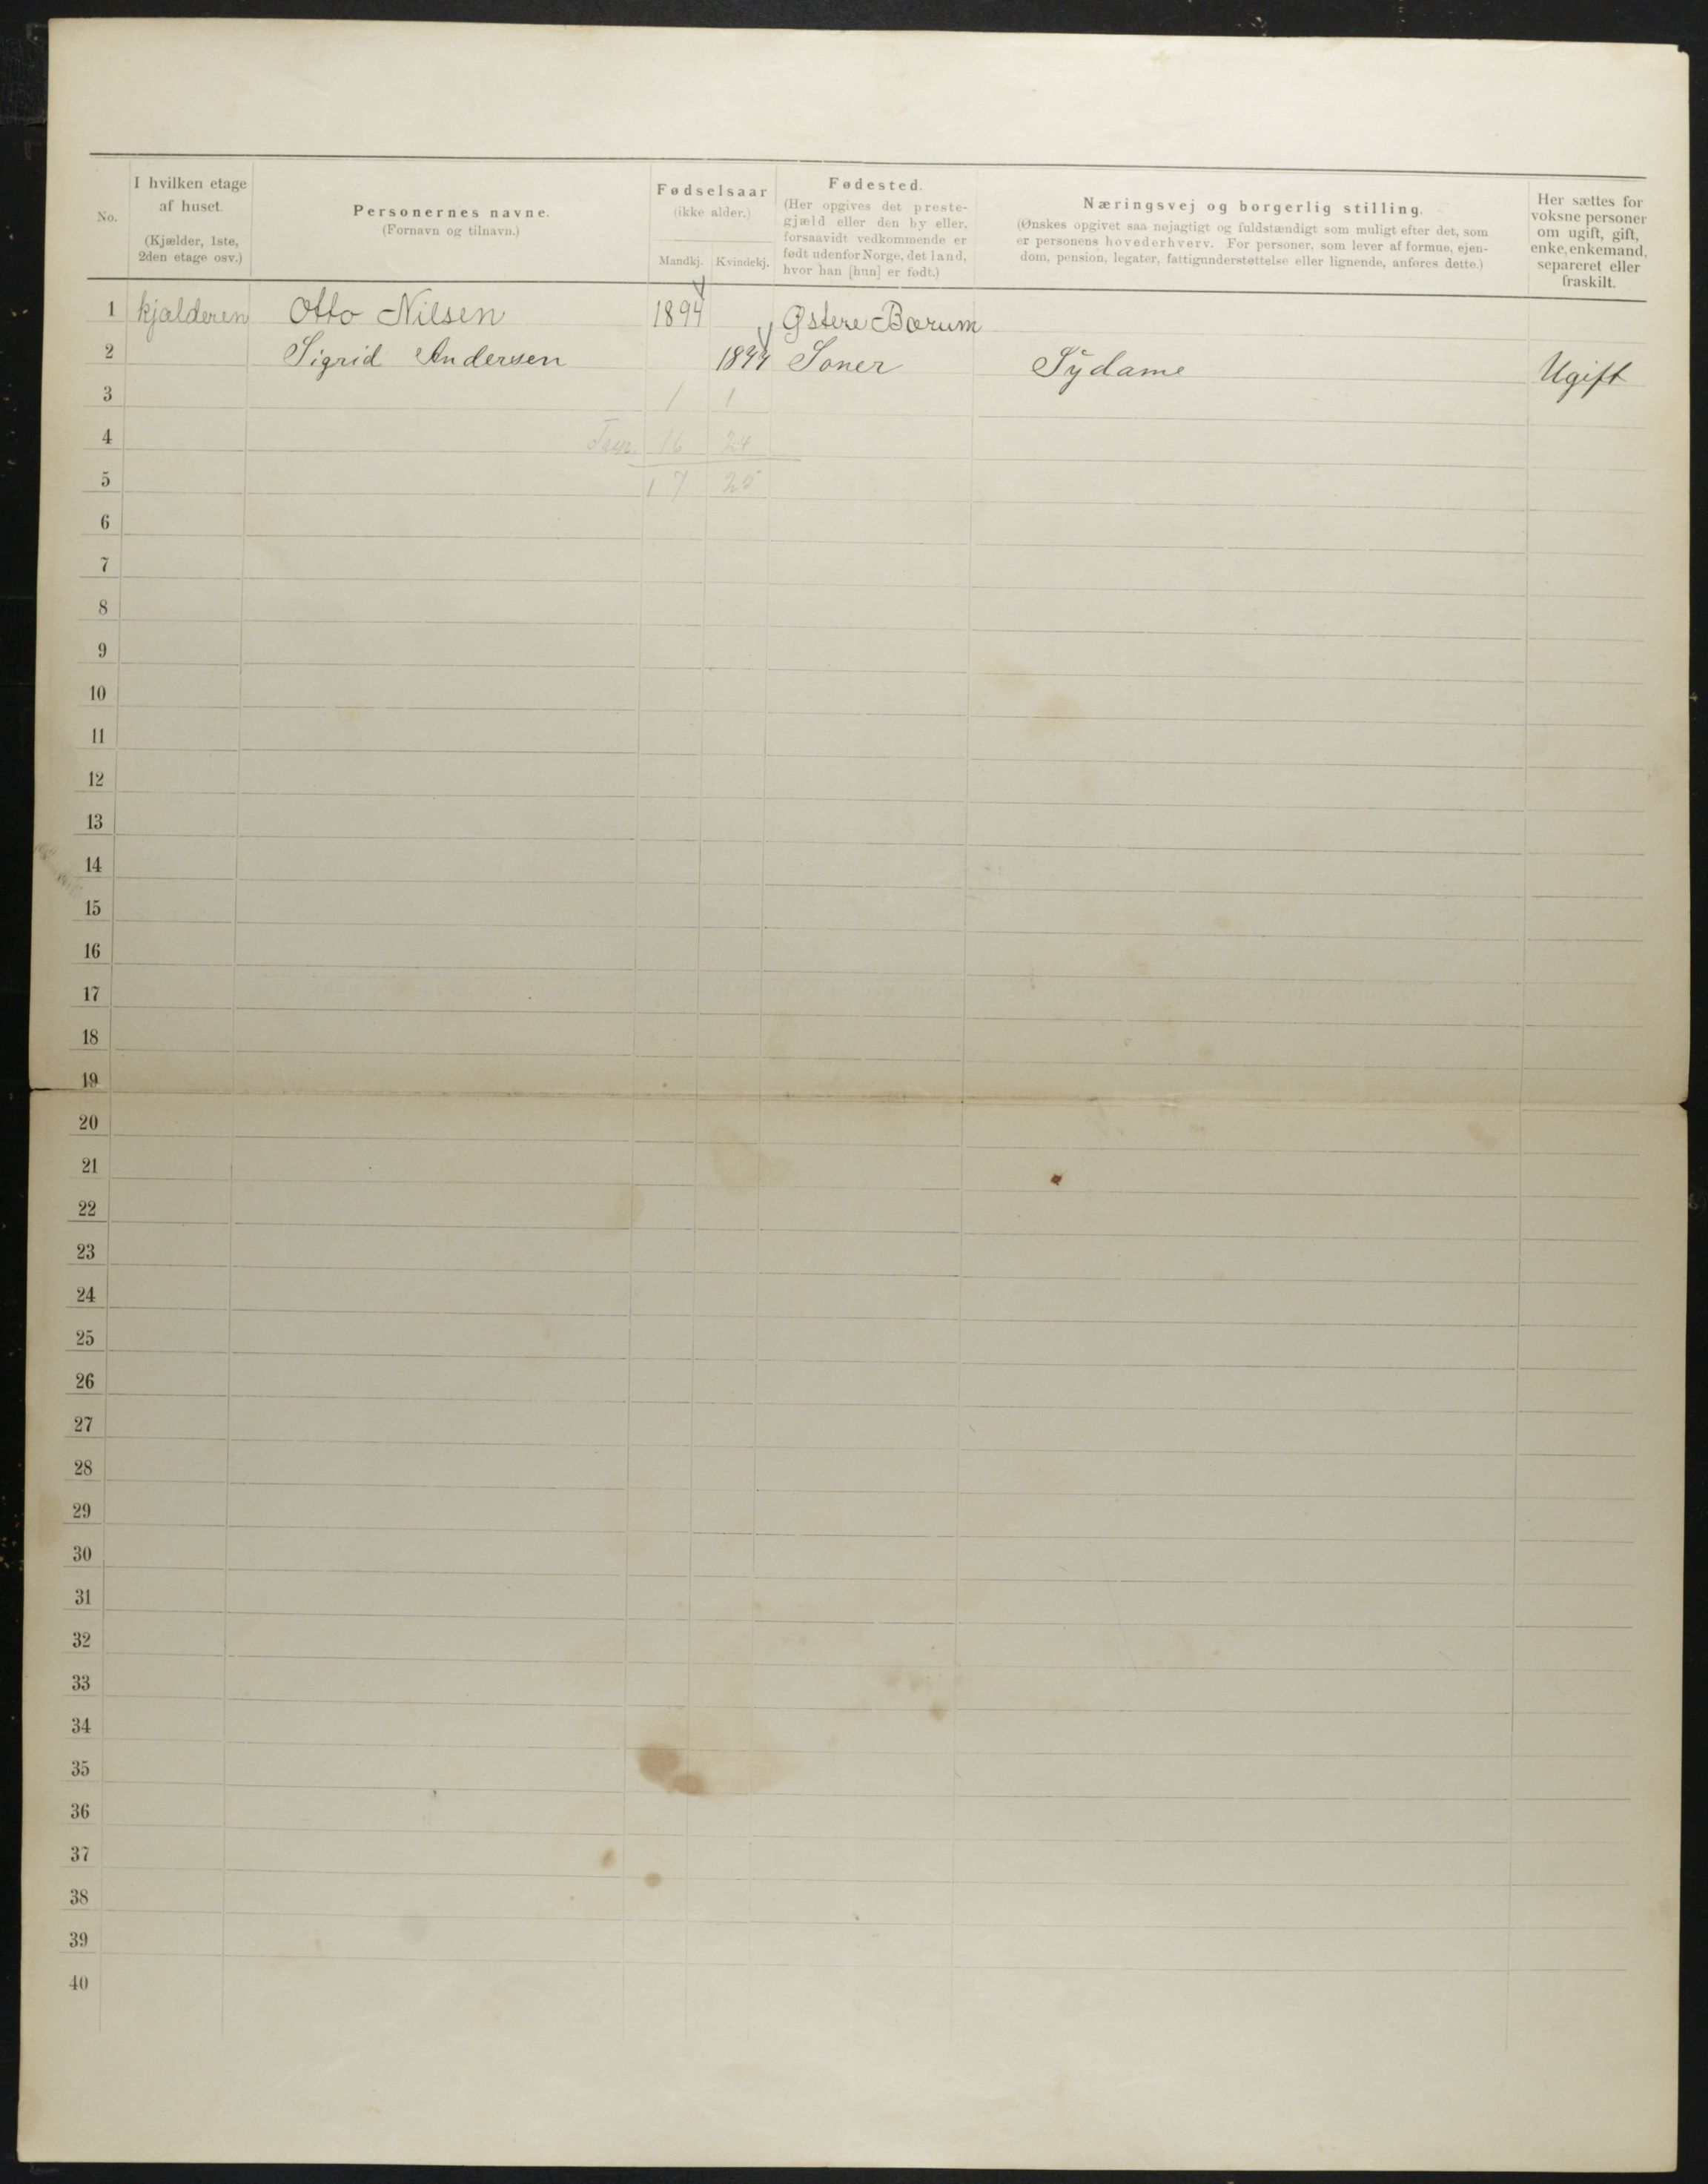 No.
I hvilken etage
af huset.
(Kjælder, 1ste,
2den etage osv.)
Personernes navne.
(Fornavn og tilnavn.)
Fødselsaar
(ikke alder.)
Mandkj. Kvindekj.
Fødested.
(Her opgives det preste-
gjæld eller den by eller,
forsaavidt vedkommende er
født udenfor Norge, det land,
hvor han [hun] er født.)
Næringsvej og borgerlig stilling.
(Ønskes opgivet saa nøjagtigt og fuldstændigt som muligt efter det, som
er personens hovederhverv. For personer, som lever af formue, ejen-
dom, pension, legater, fattigunderstøttelse eller lignende, anføres dette.)
Her sættes for
voksne personer
om ugift, gift,
enke, enkemand,
separeret eller
fraskilt.
1 kjælderen Otto Nilsen 1894 Østere Bærum
2 Sigrid Andersen Soner Sydame Ugift
3 1 1
4 16 24
5 17 25
6
7
8
9
10
11
12
13
14
15
16
17
18
19
20
21
22
23
24
25
26
27
28
29
30
31
32
33
34
35
36
37
38
39
40